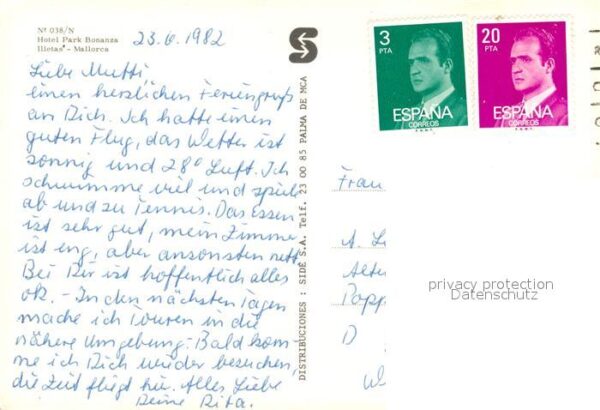 Nº 038/N
Hotel Park Bonanza
Illetas - Mallorca
23.6.1982
Liebe Mutti,
einen herzlichen Feriengruß
an Dich. Ich hatte einen
guten Flug, das Wetter ist
sonnig und 28° Luft. Ich
schwimme viel und spiele
ab und zu Tennis. Das Essen
ist sehr gut, mein Zimmer
ist eng, aber ansonsten nett
Bei Dir ist hoffentlich alles
ok. - In den nächsten Tagen
mache ich Touren in die
nähere Umgebung. Bald kom-
me ich Dich wieder besuchen,
die Zeit fliegt hier. Alles Liebe
Deine Rita.
DISTRIBUCIONES : SIDE S.A. Telf. 23 00 85 PALMA DE MCA
S
3
PTA
ESPAÑA
CORREOS
20
PTA
ESPAÑA
CORREOS
Frau
A. L
Alte
Popp
D
privacy protection
Datenschutz